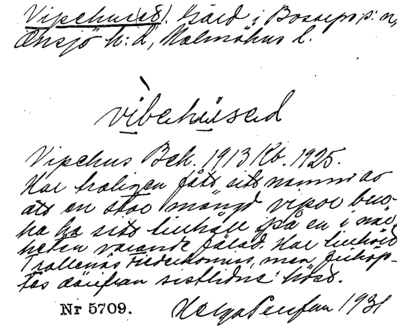 Vipehus(et). Gård i Bosarps s:n,
Onsjö h:d, Malmöhus l.
vibahused
Vipehus Bck. 1913 Kb. 1925.
Har troligen fått sitt namn av
att en stor mängd vipor bru-
ka ha sitt tillhåll på en i när-
heten varande fälad. Har tillhört
Trollenäs fideikommis, men frikøp-
tes därifrån sistlidne höst.
Nr 5709.
Helga 1931